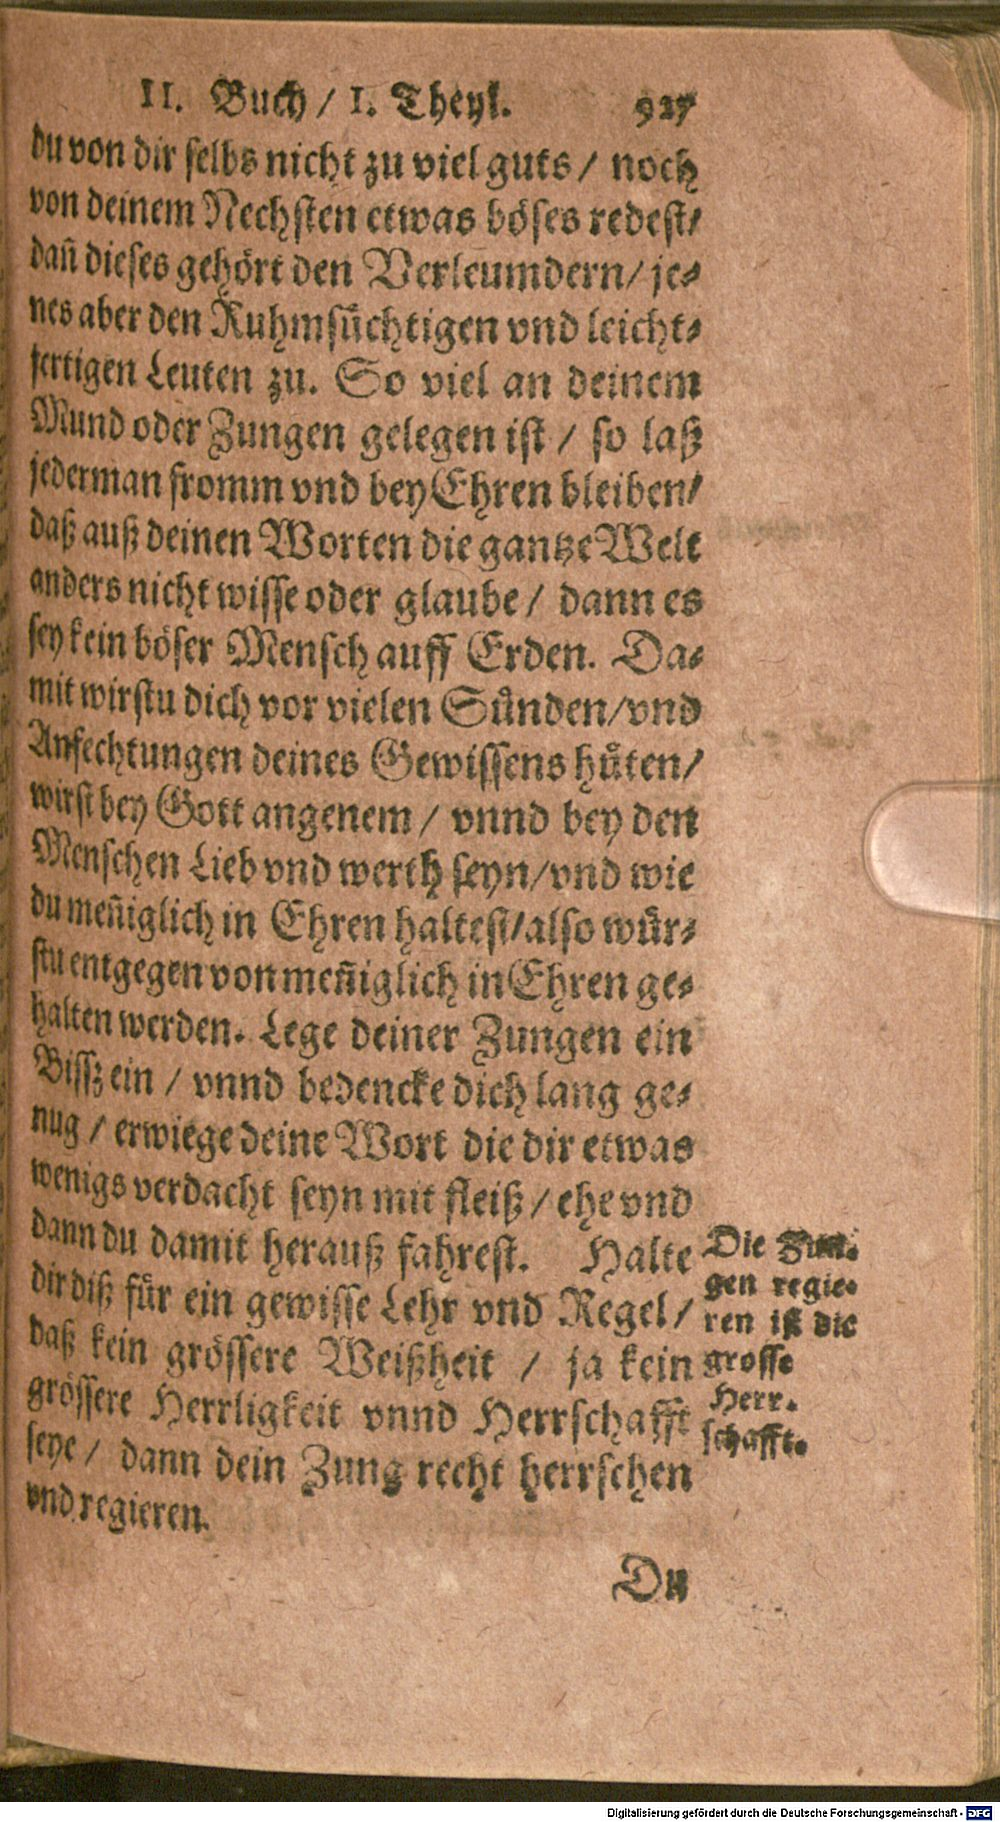 II. Buch / I. Theyl. 927
du von dir selbs nicht zu viel guts / noch
von deinem Nechsten etwas böses redest/
dañ dieses gehört den Verleumdern/ je-
nes aber den Ruhmsüchtigen vnd leicht-
fertigen Leuten zu. So viel an deinem
Mund oder Zungen gelegen ist / so laß
jederman fromm vnd bey Ehren bleiben/
daß auß deinen Worten die gantze Welt
anders nicht wisse oder glaube / dann es
sey kein böser Mensch auff Erden. Da-
mit wirstu dich vor vielen Sünden/vnd
Anfechtungen deines Gewissens hüten/
wirst bey Gott angenem / vnnd bey den
Menschen Lieb vnd werth seyn/vnd wie
du meñiglich in Ehren haltest/also wür-
stu entgegen von meñiglich in Ehren ge-
halten werden. Lege deiner Zungen ein
Bissz ein / vnnd bedencke dich lang ge-
nug / erwiege deine Wort die dir etwas
wenigs verdacht seyn mit fleiß / ehe vnd
dann du damit herauß fahrest. Halte
dir diß für ein gewisse Lehr vnd Regel /
daß kein grössere Weißheit / ja kein
grössere Herrligkeit vnnd Herrschafft
seye / dann dein Zung recht herrschen
vnd regieren.
Die Zun-
gen regie-
ren ist die
grosse
Herr-
schafft.
Du
Digitalisierung gefördert durch die Deutsche Forschungsgemeinschaft - DFG